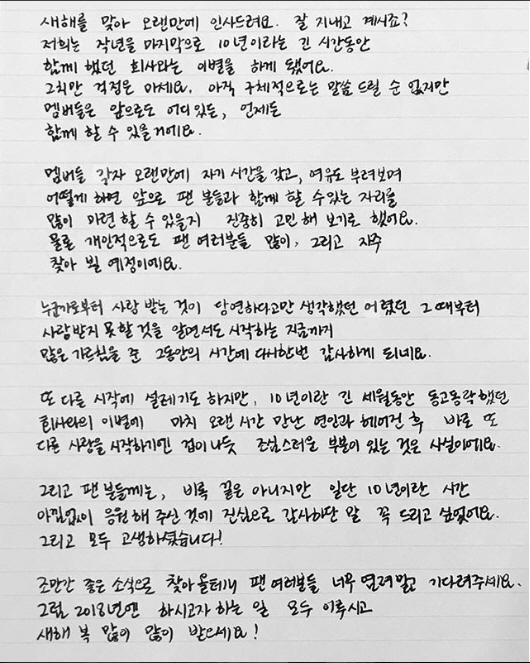 새해를 맞아 오랜만에 인사드려요. 잘 지내고 계시죠?
저희는 작년을 마지막으로 10년이라는 긴 시간동안
함께 했던 회사와는 이별을 하게 됐어요.
그치만 걱정은 마세요. 아직 구체적으로는 말씀 드릴 순 없지만
멤버들은 앞으로도 어디있든, 언제든
함께 할 수 있을거에요.
멤버들 각자 오랜만에 자기 시간을 갖고, 여유도 부려보며
어떻게 하면 앞으로 팬 분들과 함께 할 수 있는 자리를
많이 마련할 수 있을지 진중히 고민해 보기로 했어요.
물론 개인적으로도 팬 여러분들 많이, 그리고 자주
찾아 뵐 예정이에요.
누군가로부터 사랑 받는 것이 당연하다고만 생각했던 어렸던 그 때부터
사랑받지 못할 것을 알면서도 시작하는 지금까지
많은 가르침을 준 그동안의 시간에 다시한번 감사하게 되네요.
또 다른 시작에 설레기도 하지만, 10년이란 긴 세월동안 동고동락했던
회사와의 이별에 마치 오랜 시간 만난 연인과 헤어진 후 바로 또
다른 사랑을 시작하기엔 겁이 나듯 조심스러운 부분이 있는 것은 사실이에요.
그리고 팬 분들께는, 비록 끝은 아니지만 일단 10년이란 시간
아낌없이 응원해 주신 것에 진심으로 감사하단 말 꼭 드리고 싶었어요.
그리고 모두 고생하셨습니다!
조만간 좋은 소식으로 찾아올테니 팬 여러분들 너무 염려말고 기다려주세요.
그럼 2018년엔 하시고자 하는 일 모두 이루시고
새해 복 많이 많이 받으세요!